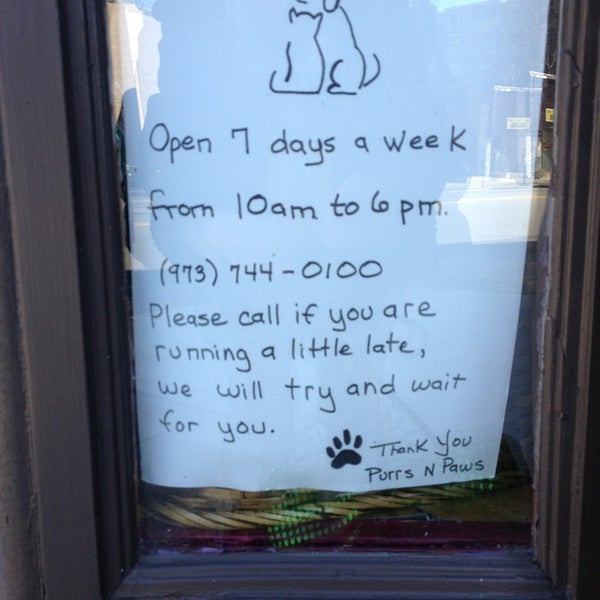 Open 7 days a week
from 10am to 6 pm.
(973) 744-0100
Please call if you are
running a little late,
we will try and wait
for you.
Thank You
Purrs N Paws